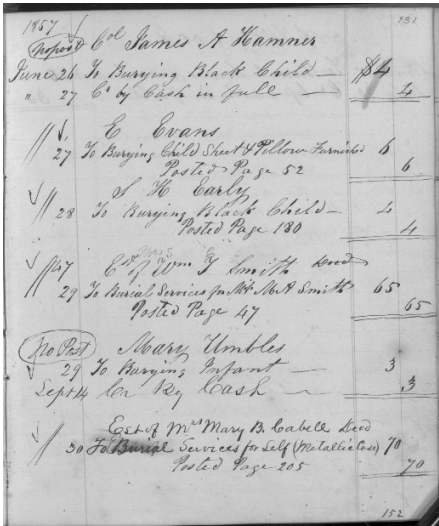 1857 131
No post Col James A Hamner
June 26 To Burying Black Child — $4
" 27 Cr by Cash in full — 4
E Evans
27 To Burying Child Sheet & Pillow Furnished 6
Posted Page 52 6
S H Early
28 To Burying Black Child — 4
Posted Page 180 4
Est of Wm Smith Decd
29 To Burial Services for M A Smith 65
Posted Page 47 65
No Post Mary Umbles
29 To Burying Infant — 3
Sept 14 Cr By Cash — 3
Est of Mrs Mary B. Cabell Decd
30 To Burial Services for Self (Metallic Case) 70
Posted Page 205 70
152